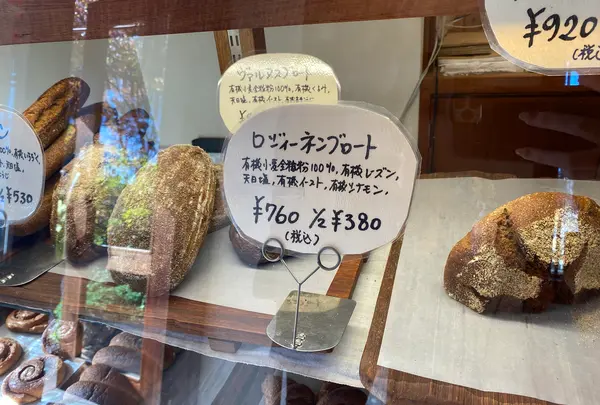 ¥920
(税込)
ヴァルヌスブロート
有機小麦全粒粉100%、有機くるみ、
天日塩、有機イースト、
ロジィーネンブロート
有機小麦全粒粉100%、有機レーズン、
天日塩、有機イースト、有機シナモン、
¥760 ½ ¥380
(税込)
½ ¥530